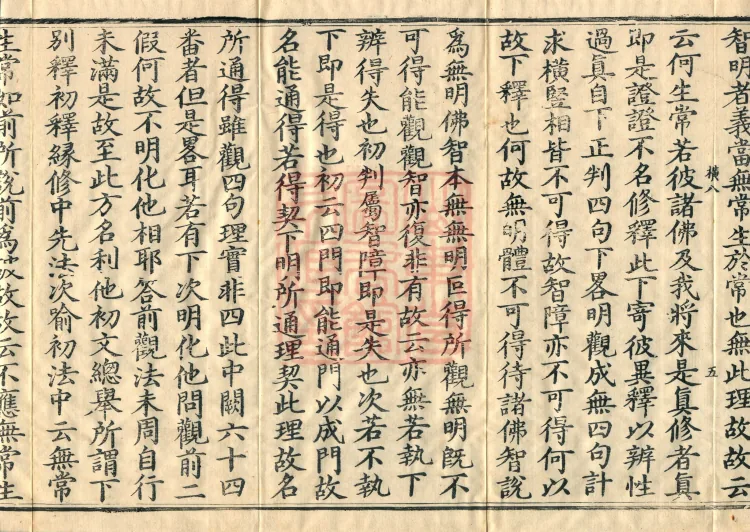 智明者義當無常生於常也無此理故故云
云何生常若彼諸佛及我將來是眞修者眞
橫八
五
即是證證不名修釋此下寄彼異釋以辨性
過眞自下正判四句下畧明觀成無四句計
求橫豎相皆不可得故智障亦不可得何以
故下釋也何故無明體不可得待諸佛智說
爲無明佛智本無無明叵得所觀無明旣不
可得能觀觀智亦復非有故云亦無若執下
辨得失也初判屬智障即是失也次若不執
下即是得也初云四門即能通門以成門故
名能通得若得契下明所通理契此理故名
所通得雖觀四句理實非四此中闕六十四
番者但是畧耳若有下次明化他問觀前二
假何故不明化他相耶答前觀法未周自行
未滿是故至此方名利他初文總舉所謂下
別釋初釋緣修中先法次喻初法中云無常
生常如前所說前爲破故故云不應無常生